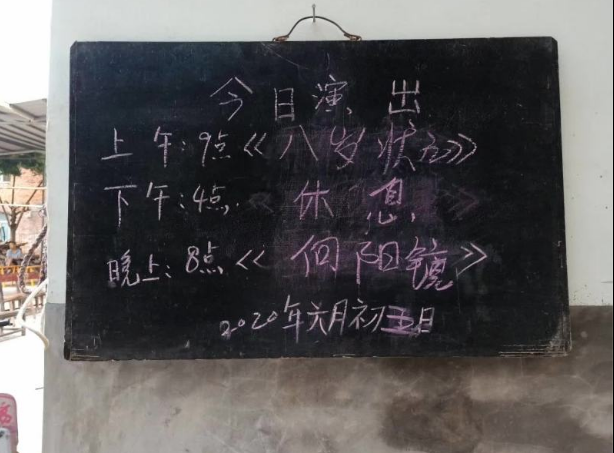 今日演出
上午:9点《八岁状元》
下午:4点, 休息
晚上:8点《何阳镜》
2020年六月初五日